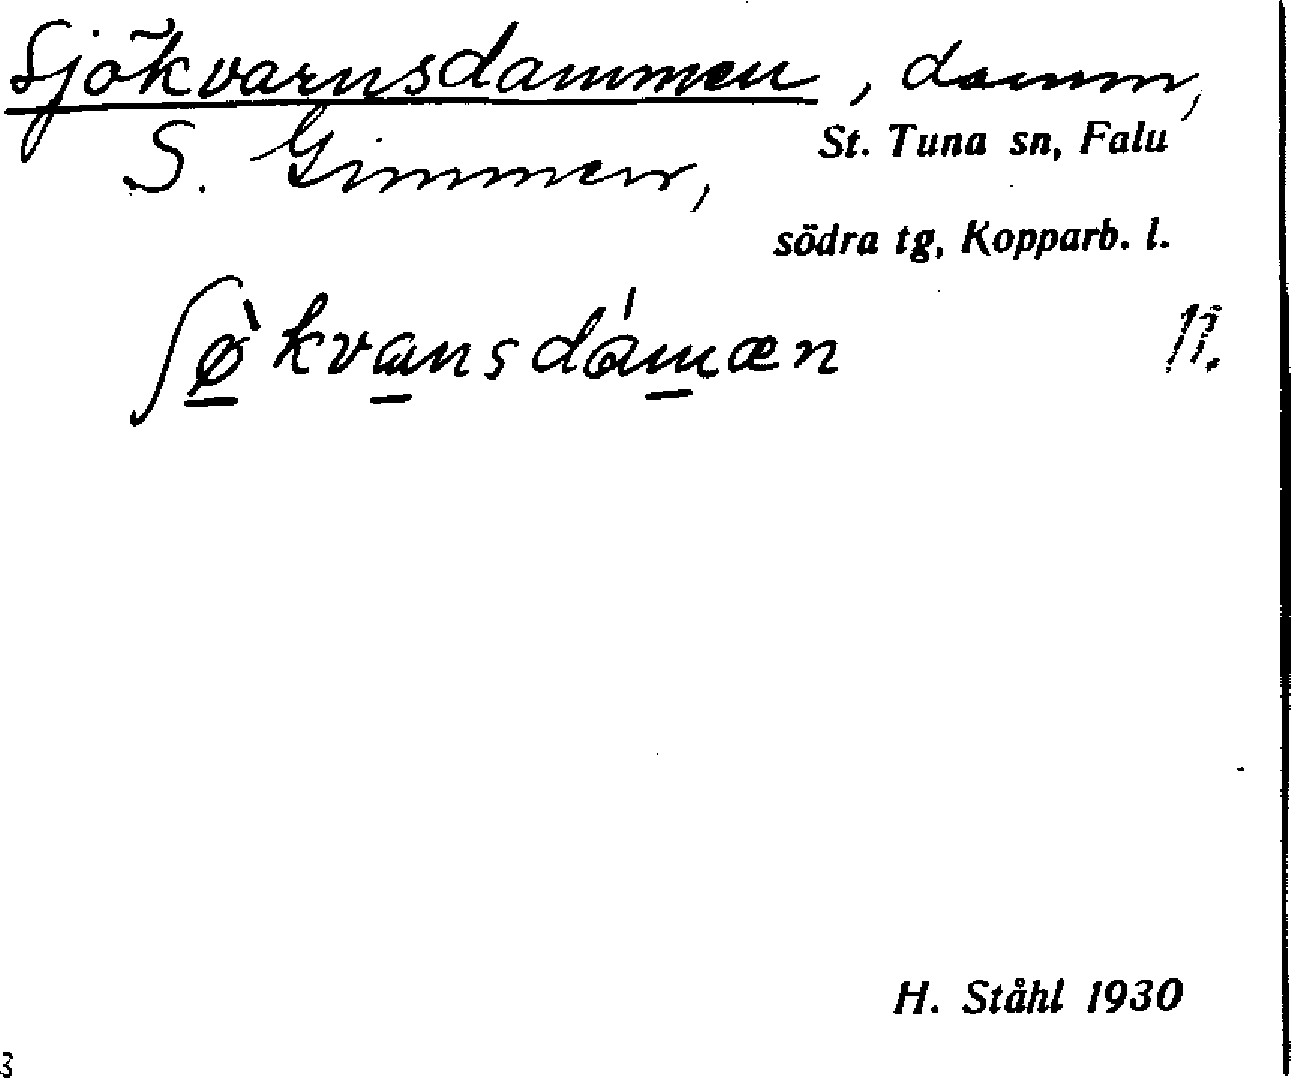 Sjökvarnsdammen, damm,
S. Gimmen, St. Tuna sn, Falu
södra tg, Kopparb. l.
ʃø̀kvansdámæn 11.
H. Ståhl 1930
3